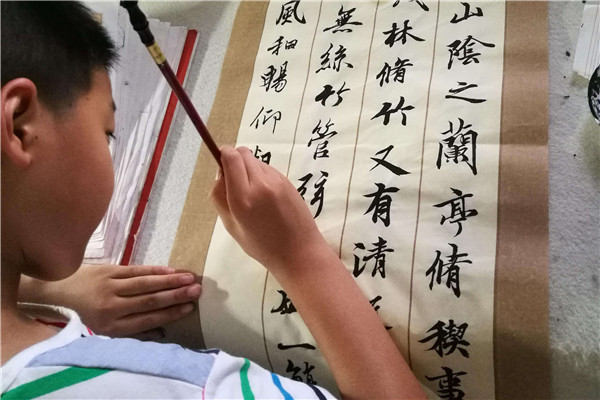 山陰之蘭亭脩稧事
林脩竹又有清
無絲竹管弦 一
風和暢仰